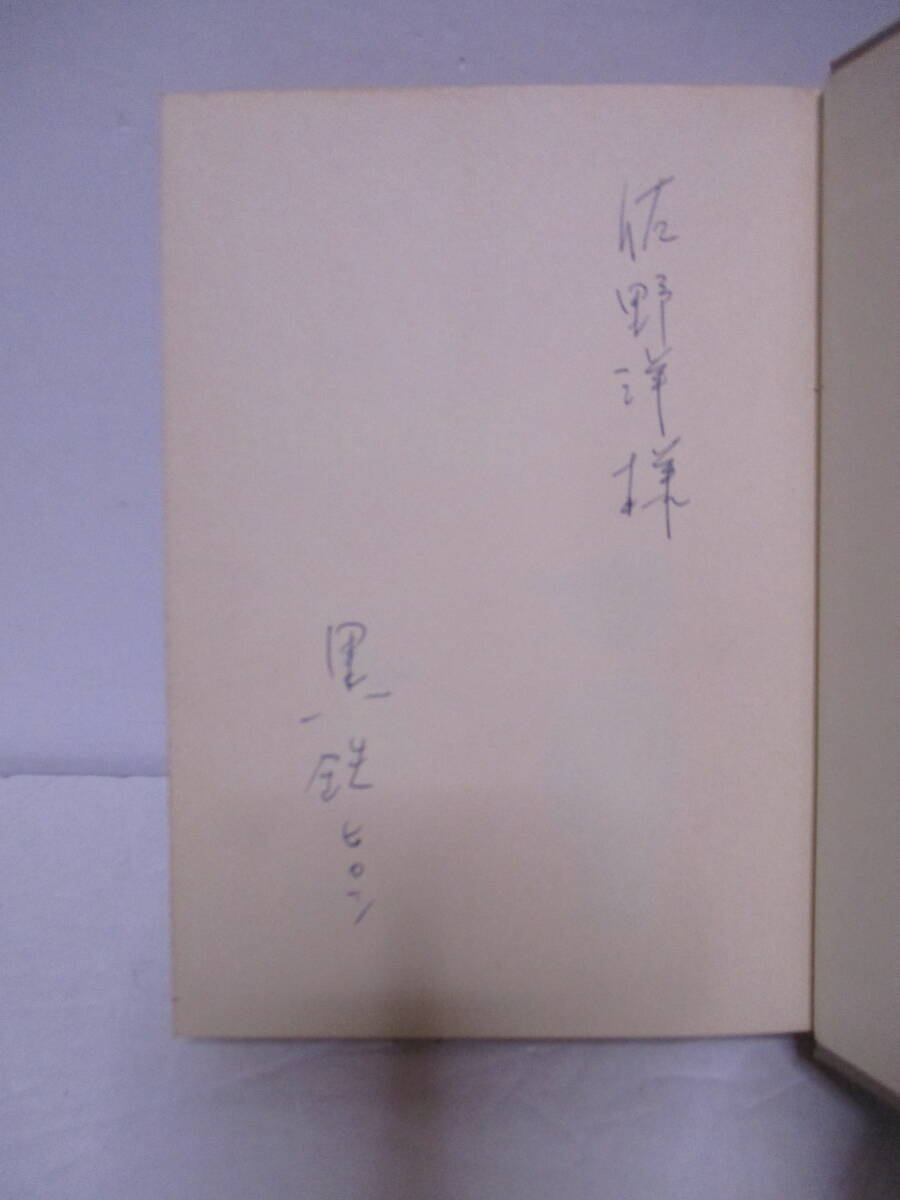 佐野洋様
黒鉄ヒロシ